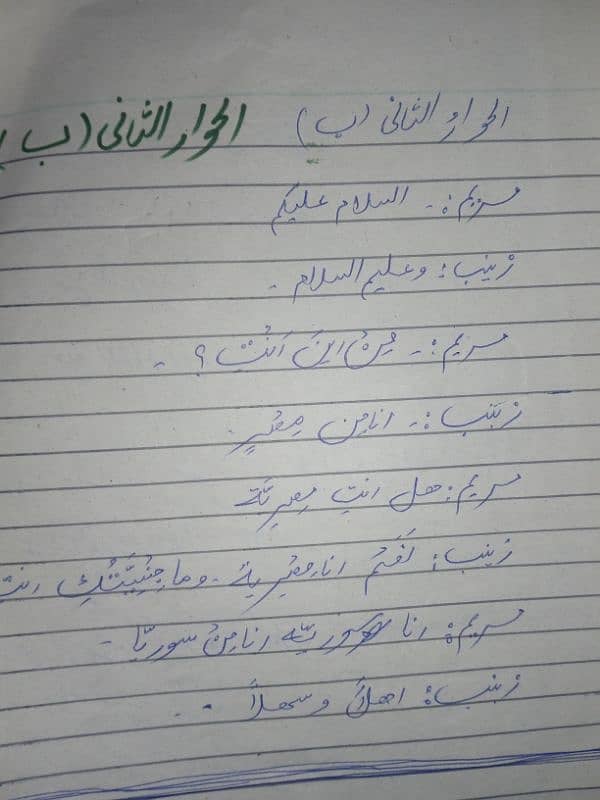 الحوارُ الثانى (ب) الحوار الثانى (ب)
مريم:- السلام عليكم
زينب: وعليم السلام -
مريم:- مِنْ اينَ اَنْتِ ؟ -
زينب:- انا مِن مِصْرٍ
مريم: هل انتِ مِصرِيَّة
زينب: نَعَمْ انا مِصْرِيةُ - وما جِنْسِيَّتُكِ انت
مريم: انا سوريّه انا مِنْ سوريّا -
زينب: اهلاً و سهلاً -